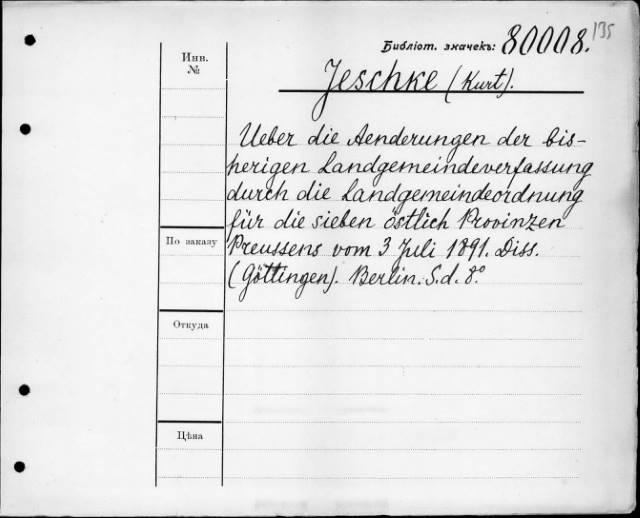 135
Библіот. значекъ: 80008.
Инв. №
Jeschke (Kurt).
Ueber die Aenderungen der bis-
herigen Landgemeindeverfassung
durch die Landgemeindeordnung
für die sieben östlich Provinzen
Preussens vom 3 Juli 1891. Diss.
(Göttingen). Berlin. S.d. 8°
По заказу
Откуда
Цѣна